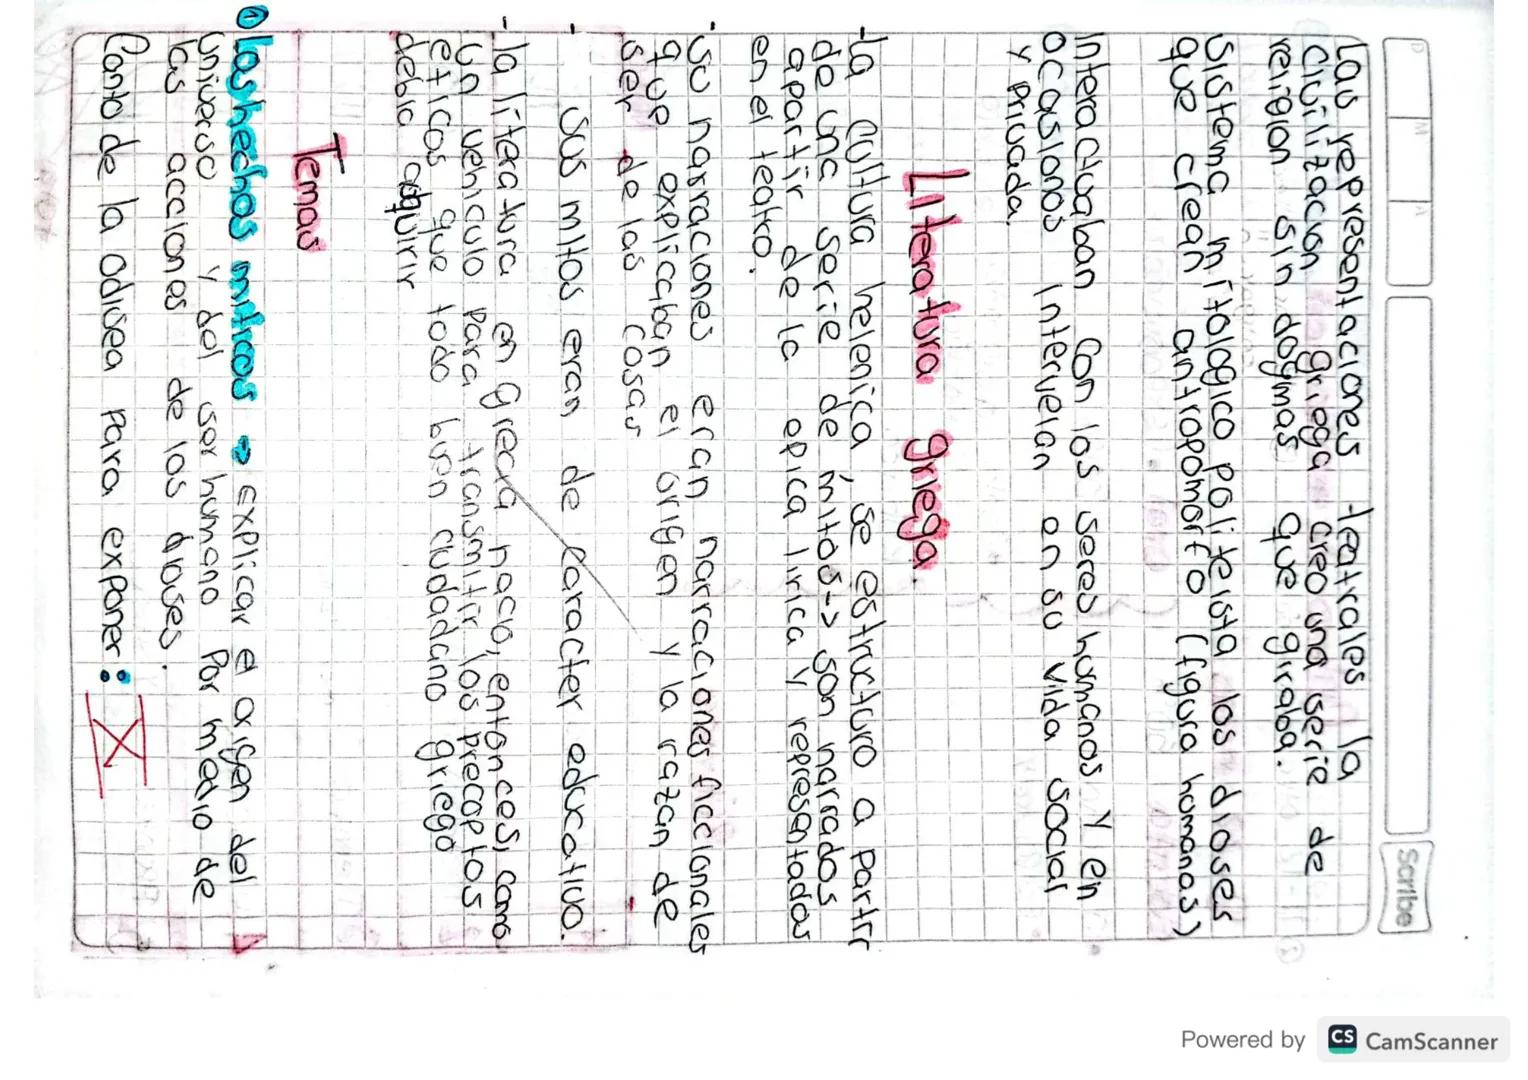 D M A
Scribe
Las representaciones teatrales la
civilización griega creo una serie de
religion sin dogmas que giraba.
Sistema mitologico politeista los dioses
que crean antropomorfo (figura humanas)
Interactuaban Con los seres humanos y en
ocasiones interveian en su vida social
y privada.
Literatura griega.
-la cultura helenica, se estructuro a partir
de una serie de mitos-> son narrados
apartir de la epica lirica y representadas
en el teatro.
-su narraciones eran narraciones ficcionales
que explicaban el origen y la razan de
ser de las cosas
- sus mitos eran de caracter educativo.
-la literatura en Grecia nacio, entonces, como
un vehiculo para transmitir los preceptos
eticos que todo buen ciudadano griego
debia adquirir
Temas
① Las hechos miticos → explicar el origen del
universo y del ser humano Por medio de
las acciones de los dioses.
Canto de la odisea para exponer: X
Powered by CS CamScanner